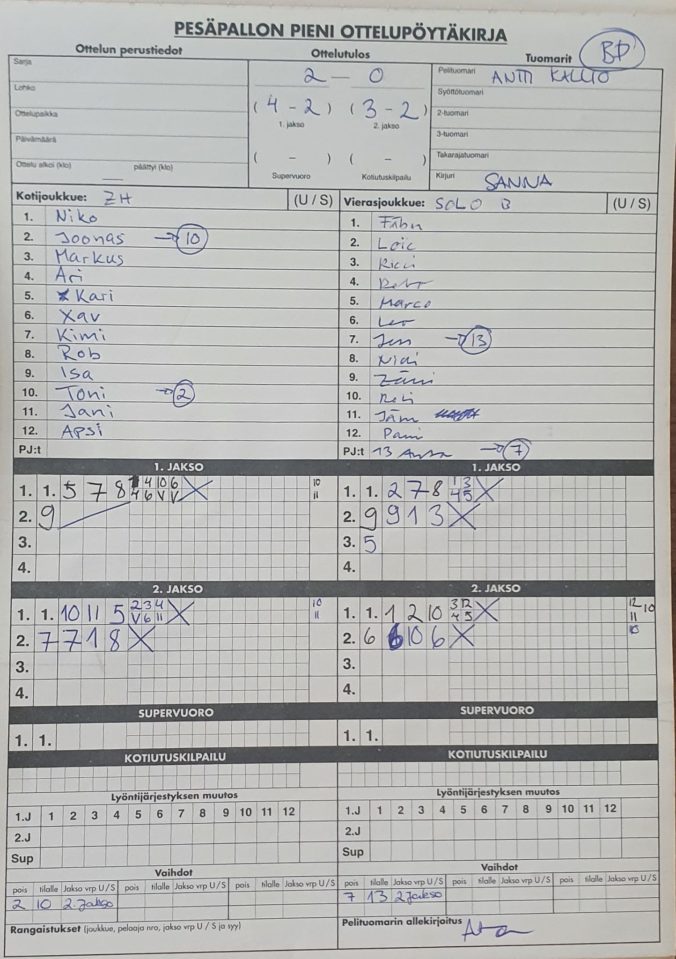 PESÄPALLON PIENI OTTELUPÖYTÄKIRJA
Ottelun perustiedot
Ottelutulos
Tuomarit
BP
Sarja
Lohko
Ottelupaikka
Päivämäärä
Ottelu alkoi (klo) päättyi (klo)
2 – 0
(4 – 2) (3 – 2)
1. jakso 2. jakso
( – ) ( – )
Supervuoro Kotiutuskilpailu
Pelituomari ANTTI KALLIO
Syöttötuomari
2-tuomari
3-tuomari
Takarajatuomari
Kirjuri SANNA
Kotijoukkue: ZH (U / S)
1. Niko
2. Joonas → 10
3. Markus
4. Ari
5. Kari
6. Xav
7. Kimi
8. Rob
9. Isa
10. Toni → 2
11. Jani
12. Apsi
PJ:t
Vierasjoukkue: SOLO B (U / S)
1. Fäbu
2. Loic
3. Ricci
4.
5. Marco
6. Leo
7. Jen → 13
8. Nidi
9. Zäni
10.
11. Jäm
12.
PJ:t 13 → 7
1. JAKSO
1. 1. 5 7 8 4 10 6 X 10
4 6 V V 11
2. 9
3.
4.
1. JAKSO
1. 1. 2 7 8 1 3 X
4 5
2. 9 9 1 3 X
3. 5
4.
2. JAKSO
1. 1. 10 11 5 2 3 4 X 10
V 6 11 11
2. 7 7 1 8 X
3.
4.
2. JAKSO
1. 1. 1 2 10 3 12 X 12 10
4 5 11
2. 6 6 10 6 X 10
3.
4.
SUPERVUORO
1. 1.
SUPERVUORO
1. 1.
KOTIUTUSKILPAILU
KOTIUTUSKILPAILU
Lyöntijärjestyksen muutos
1.J 1 2 3 4 5 6 7 8 9 10 11 12
2.J
Sup
Lyöntijärjestyksen muutos
1.J 1 2 3 4 5 6 7 8 9 10 11 12
2.J
Sup
Vaihdot
pois tilalle Jakso vrp U/S pois tilalle Jakso vrp U/S pois tilalle Jakso vrp U/S
2 10 2. Jakso
Vaihdot
pois tilalle Jakso vrp U/S pois tilalle Jakso vrp U/S pois tilalle Jakso vrp U/S
7 13 2 Jakso
Rangaistukset (joukkue, pelaaja nro, jakso vrp U / S ja syy)
Pelituomarin allekirjoitus